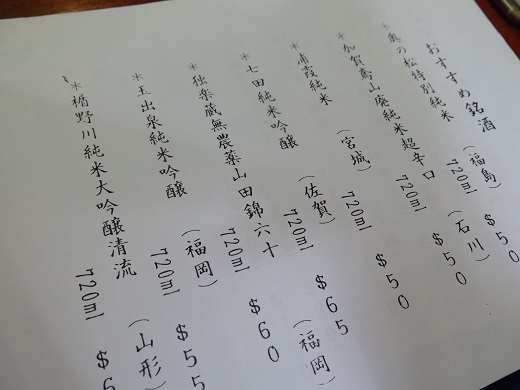 おすすめ銘酒
*奥の松特別純米 (福島) 720ml $50
*加賀鳶山廃純米超辛口 (石川) 720ml $50
*浦霞純米 (宮城) 720ml $50
*七田純米吟醸 (佐賀) 720ml $65
*独楽蔵無農薬山田錦六十 (福岡) 720ml $60
*玉出泉純米吟醸 (福岡) 720ml $55
*楯野川純米大吟醸清流 (山形) 720ml $6